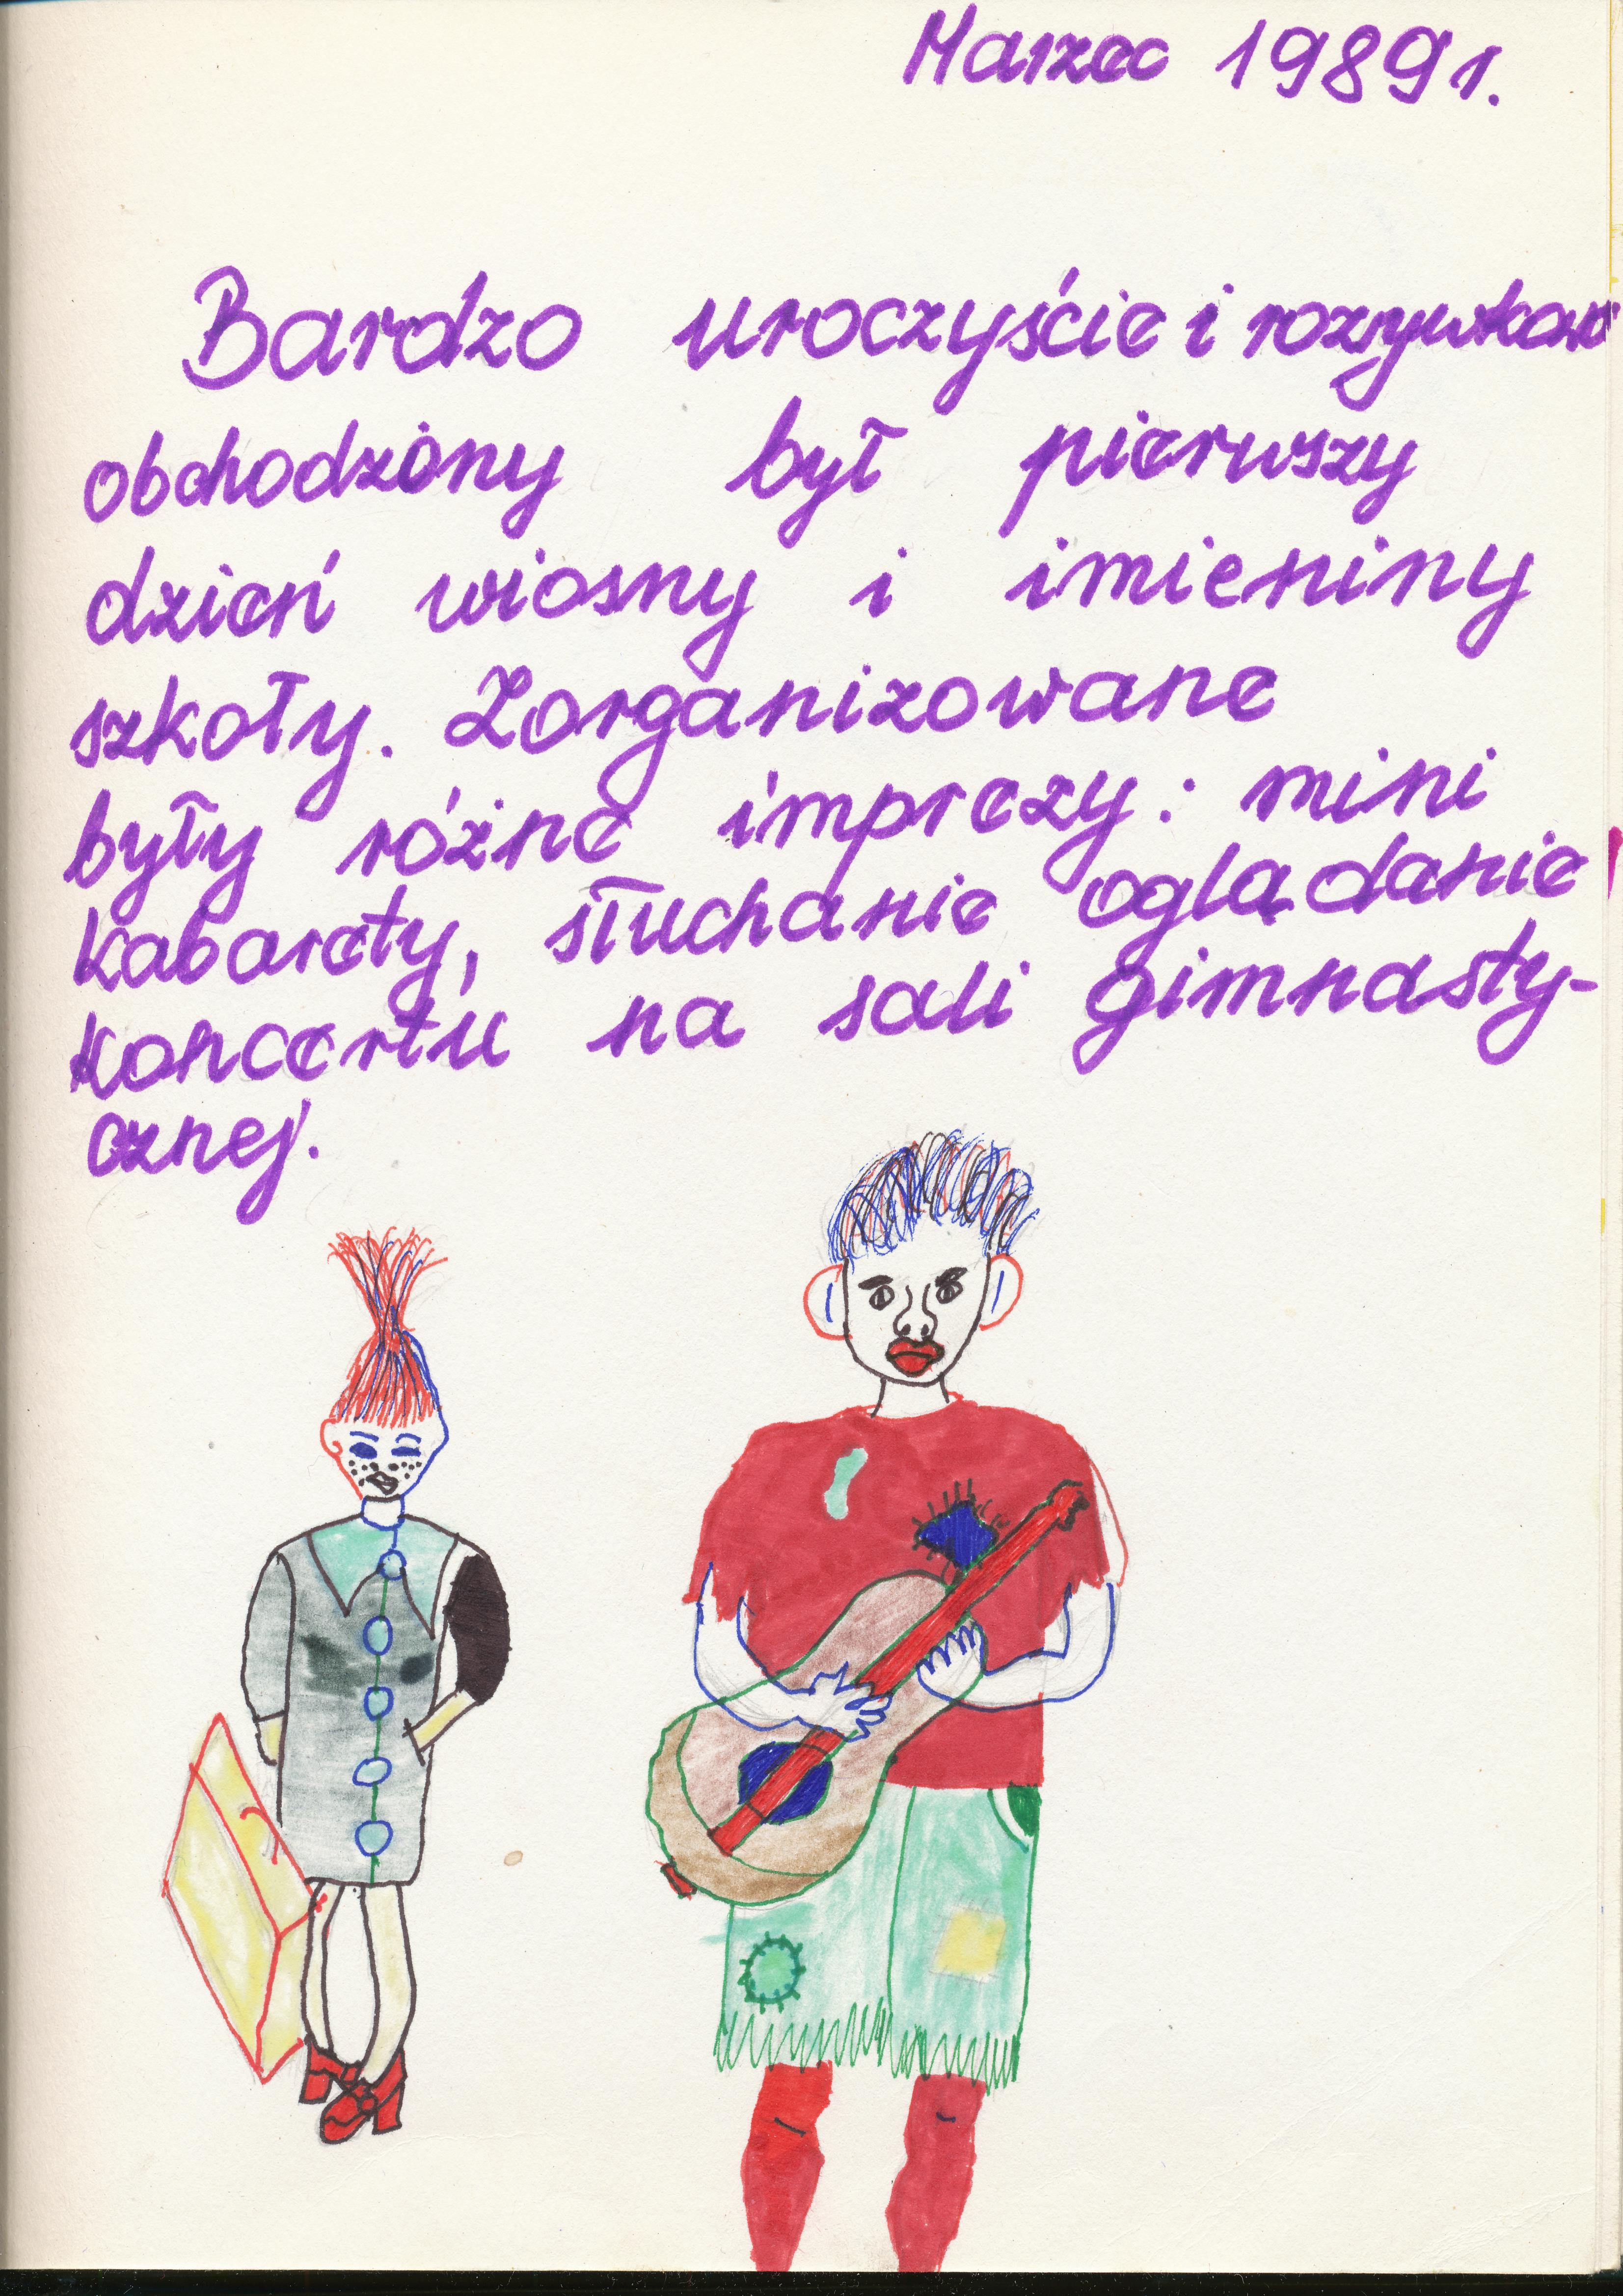 Marzec 1989r.
Bardzo uroczyście i rozrywkowo
obchodzony był pierwszy
dzień wiosny i imieniny
szkoły. Zorganizowane
były różne imprezy: mini
kabarety, słuchanie oglądanie
koncertu na sali gimnasty-
cznej.